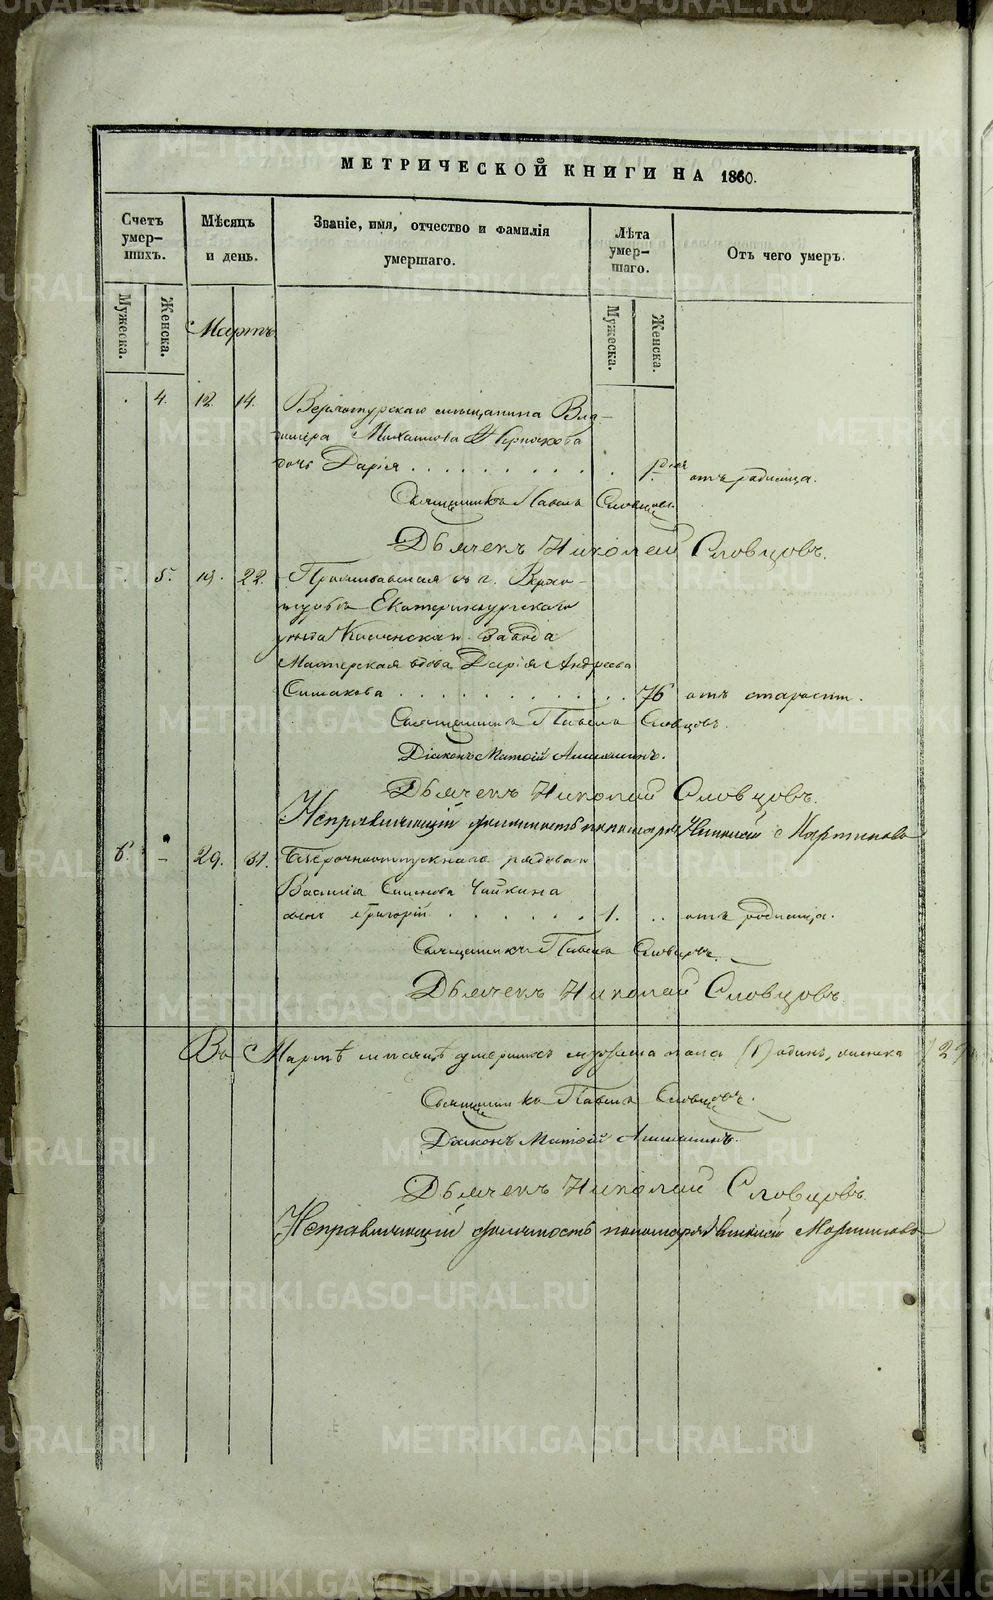 МЕТРИЧЕСКОЙ КНИГИ НА 1860.
Счетъ умер-шихъ.
Мѣсяцъ и день.
Званіе, имя, отчество и фамилія умершаго.
Лѣта умер-шаго.
Отъ чего умеръ.
Мужеска.
Женска.
Мужеска.
Женска.
Мартъ
4. 12. 14. Верхотурскаго мѣщанина Вла-
димера Михаилова
дочь Дарія 1. отъ родимца.
Священникъ Павелъ Словцовъ.
Дьячекъ Николай Словцовъ.
5. 19. 22. Проживавшая въ г. Верхо-
турьѣ Екатеринбургскаго
уѣзда Каменскаго завода
Мастерская вдова Дарія Андреева
Симакова 76 отъ старости.
Священникъ Павелъ Словцовъ.
Діаконъ Матѳій
Дьячекъ Николай Словцовъ.
Исправляющій должность пономаря Николай Мартиновъ
6. - 29. 31. Безсрочноотпускнаго рядоваго
Василія Семенова Чайкина
сынъ Григорій 1. отъ родимца.
Священникъ Павелъ Словцовъ.
Дьячекъ Николай Словцовъ.
Въ Мартѣ мѣсяцѣ умершихъ мужеска пола (1) одинъ, женска (2)
Священникъ Павелъ Словцовъ.
Діаконъ Матѳій
Дьячекъ Николай Словцовъ.
Исправляющій должность пономаря Николай Мартиновъ
METRIKI.GASO-URAL.RU